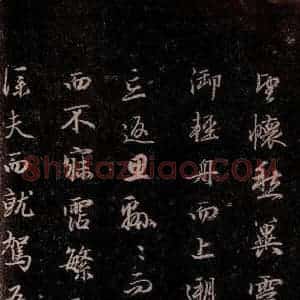 望懷愁冀靈
御輕舟而上溯
忘返思緜〻而
而不寐霑繁
僕夫而就駕吾